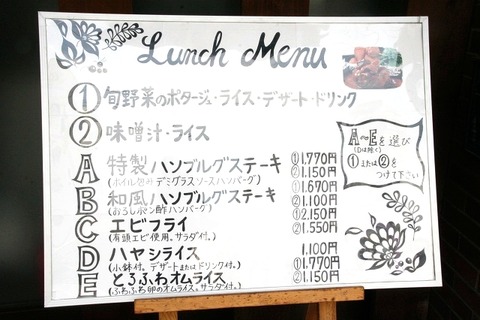 Lunch Menu
①旬野菜のポタージュ・ライス・デザート・ドリンク
②味噌汁・ライス
A〜Eを選び
(Dは除く)
①または②を
つけて下さい
A 特製ハンブルグステーキ ①1,770円
(ホイル包みデミグラスソースハンバーグ) ②1,150円
B 和風ハンブルグステーキ ①1,670円
(おろしポン酢ハンバーグ) ②1,100円
C エビフライ ①2,150円
(有頭エビ使用。サラダ付。) ②1,550円
D ハヤシライス 1,100円
(小鉢付。デザートまたはドリンク付。) ①1,770円
E とろふわオムライス ②1,150円
(ふわふわ卵のオムライス。サラダ付。)